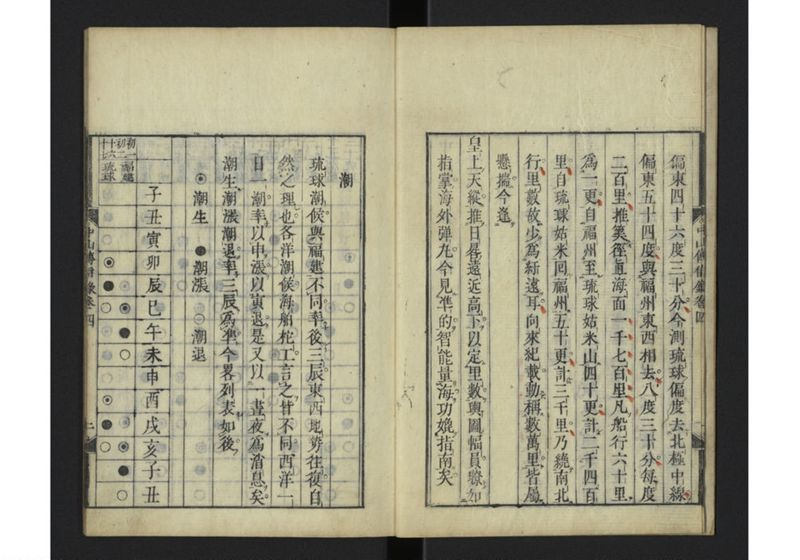 中山傳信錄卷四
偏東四十六度三十分今測琉球偏度去北極中線
偏東五十四度與福州東西相去八度三十分每度
二百里推算徑直海面一千七百里凡船行六十里
為一更自福州至琉球姑米山四十更計二千四百
里自琉球姑米囘福州五十更計三千里乃繞南北
行里數故少為紆遠耳向來紀載動稱數萬里皆屬
懸揣今逢
皇上天縱推日晷遠近高下以定里數輿圖幅員瞭如
指掌海外彈丸今見準的智能量海功媲指南矣
潮
琉球潮候與福建不同率後三辰東西地勢往復自
然之理也各洋潮候海舶柁工言之皆不同西洋一
日一潮率以申漲以寅退是又以一晝夜為消息矣
潮生潮漲潮退率三辰為準今畧列表如後
◉潮生 ●潮漲 ○潮退
子丑寅卯辰巳午未申酉戌亥子丑
福建
琉球
中山傳信錄卷四
二